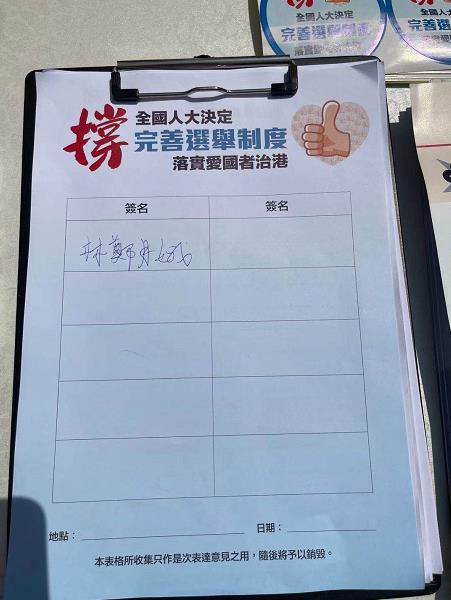 撐
全國人大決定
完善選舉制度
落實愛國者治港
簽名 簽名
林鄭月娥
地點：
日期：
本表格所收集只作是次表達意見之用，隨後將予以銷毀。
全國人大決定
完善選舉制度
落實愛國者治港